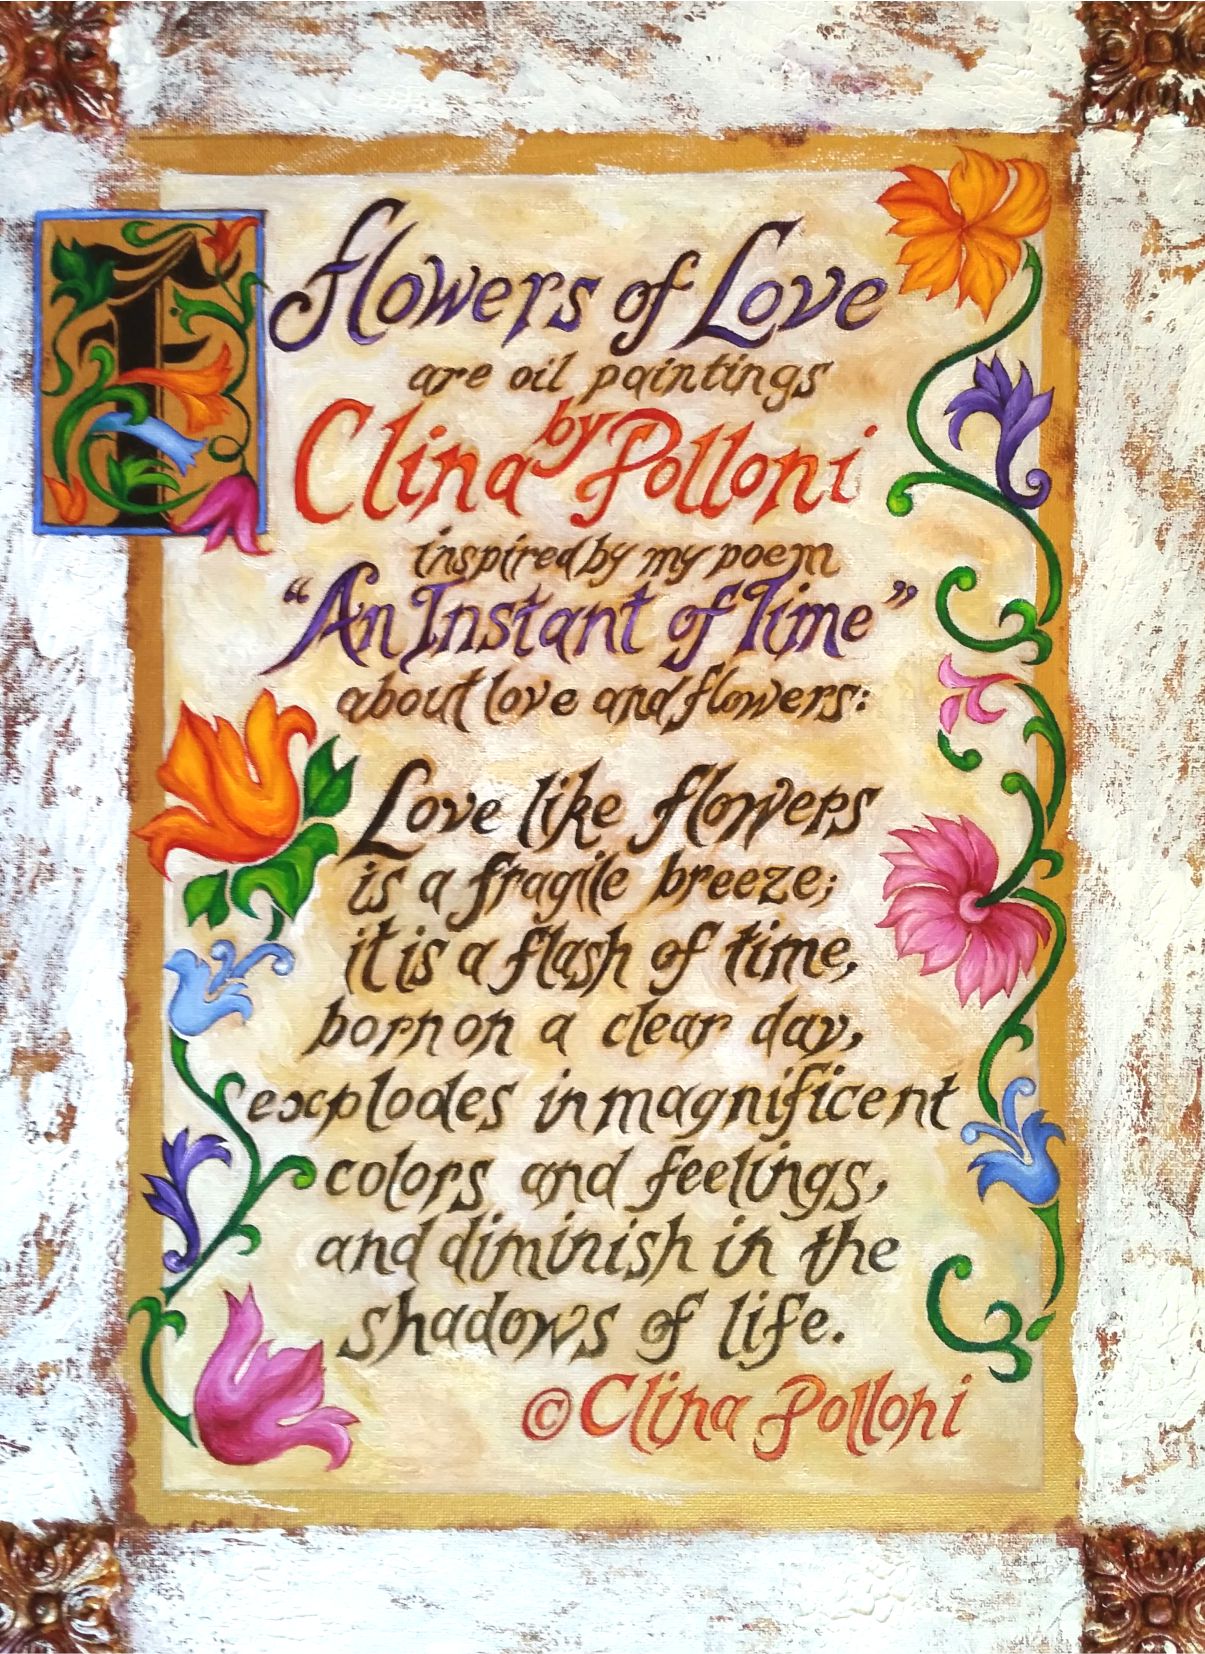 F
Flowers of Love
are oil paintings
by
Clina Polloni
inspired by my poem
“An Instant of Time”
about love and flowers:
Love like flowers
is a fragile breeze;
it is a flash of time,
born on a clear day,
explodes in magnificent
colors and feelings,
and diminish in the
shadows of life.
© Clina Polloni